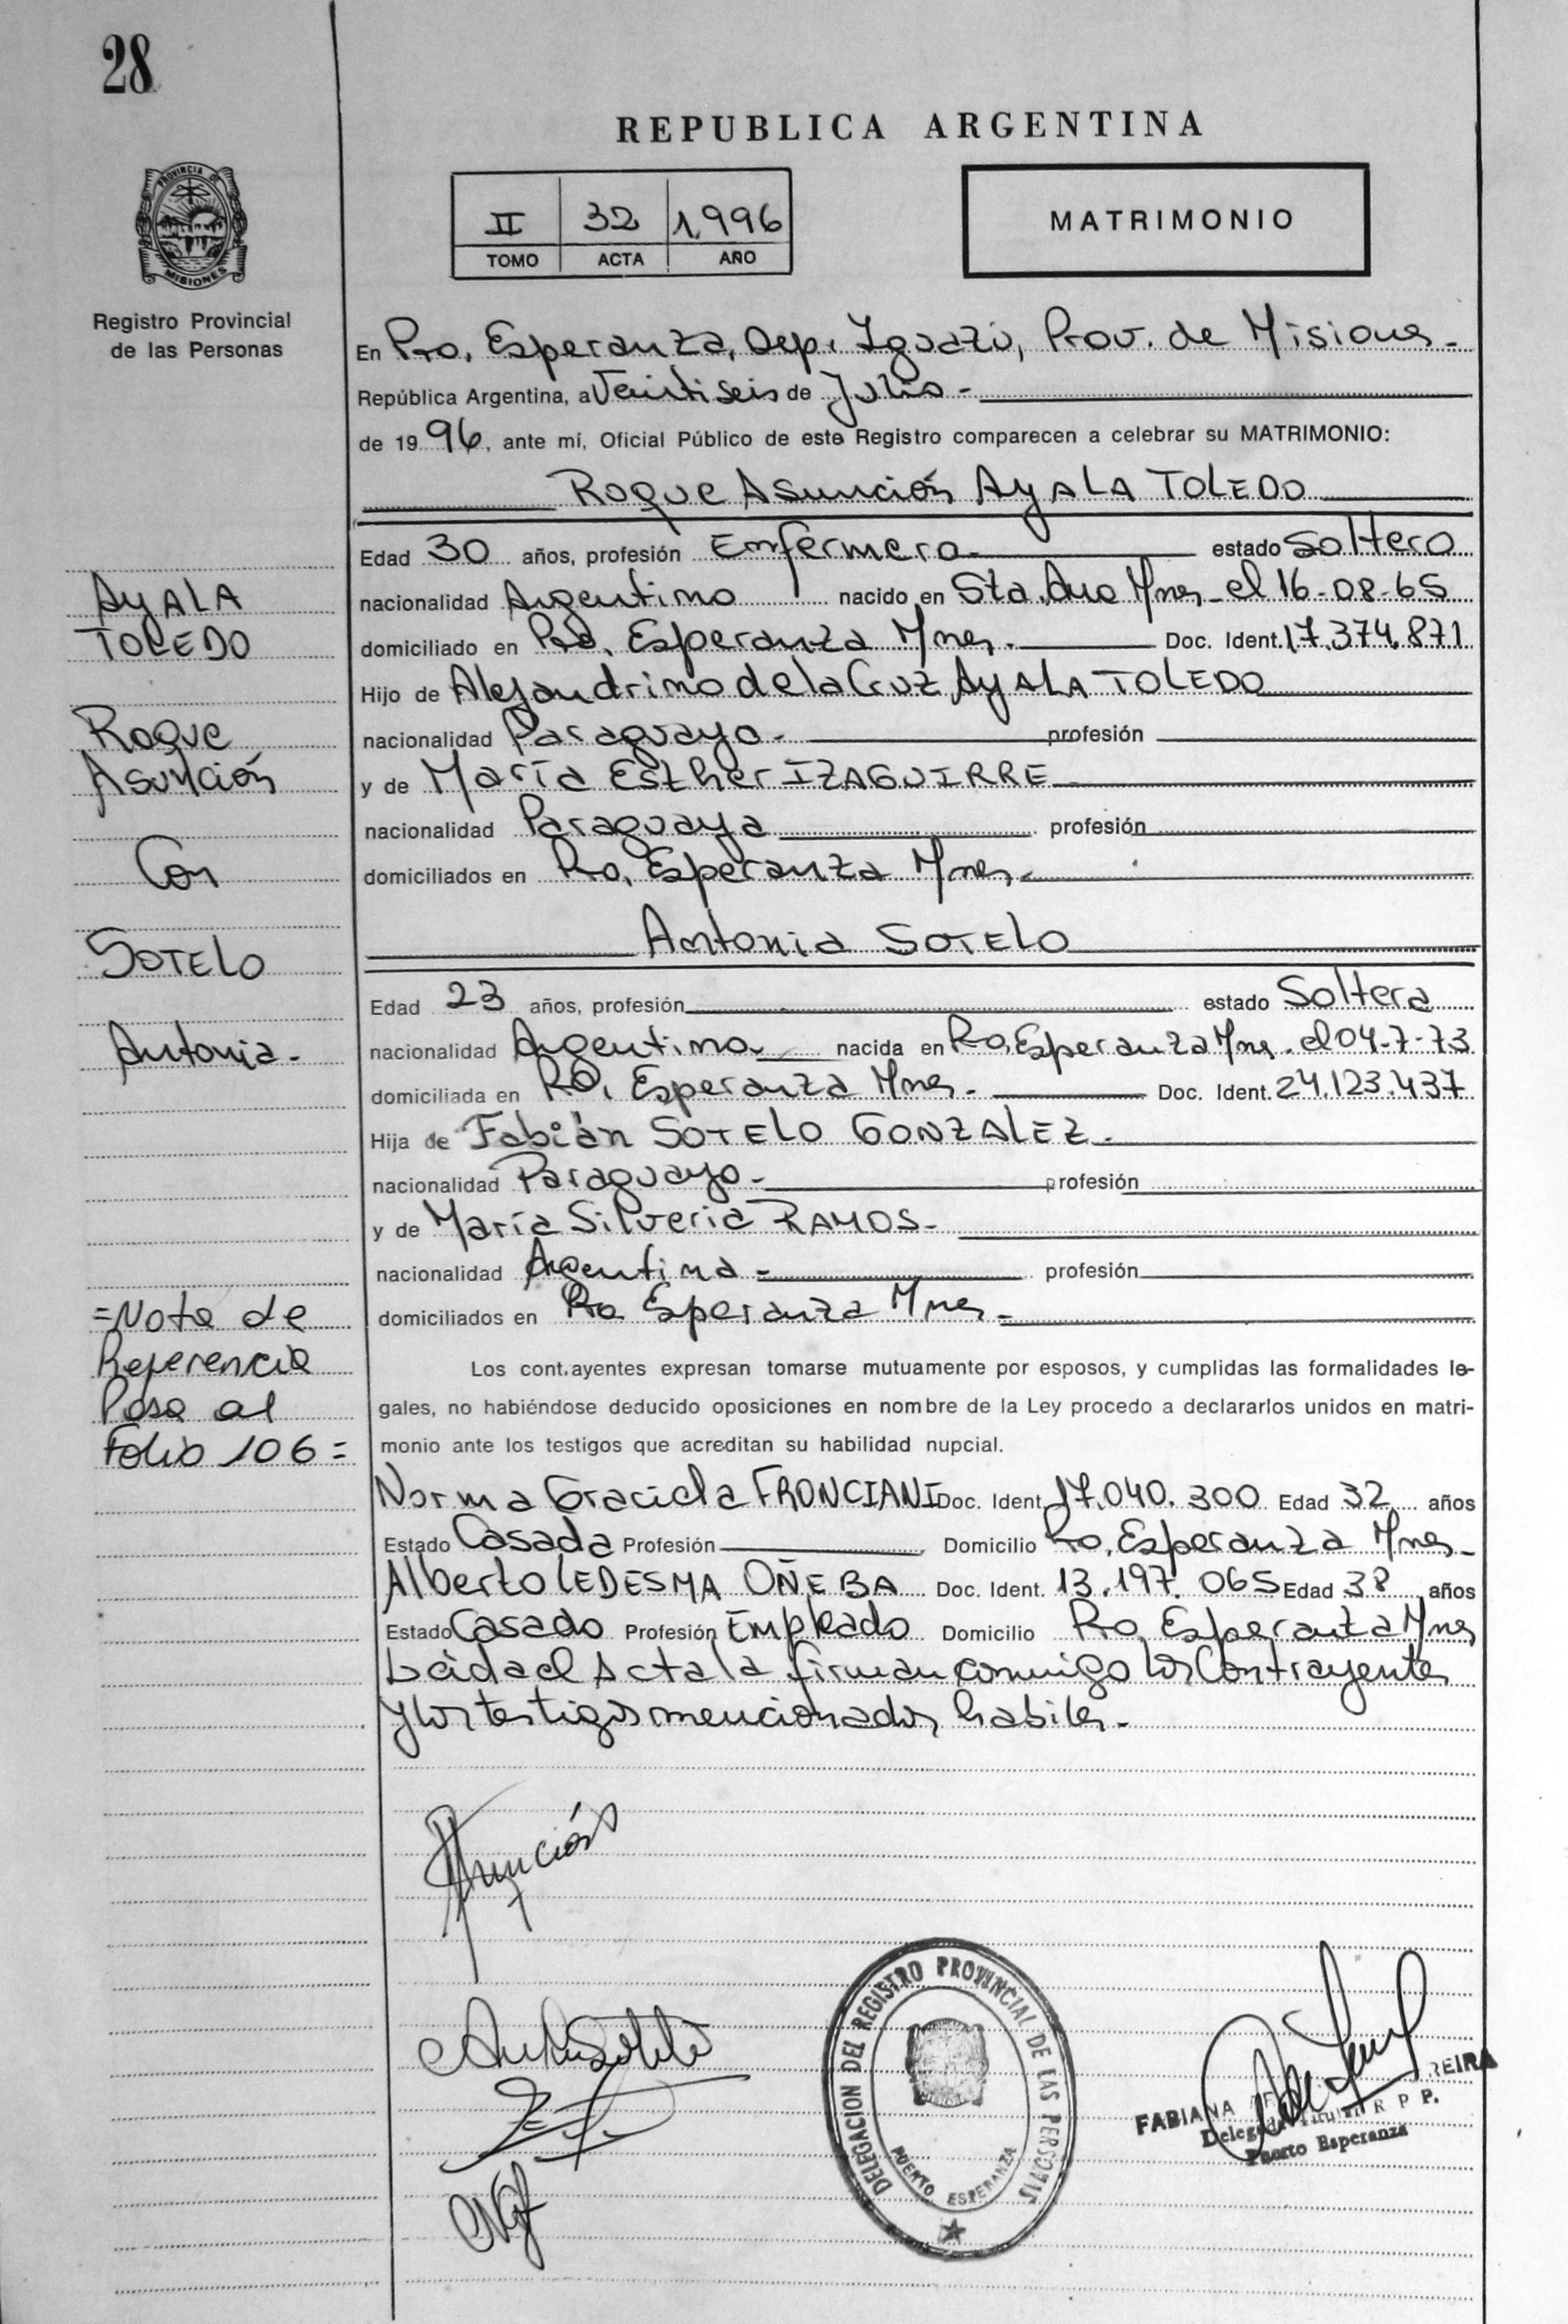 28
REPUBLICA ARGENTINA
PROVINCIA DE MISIONES
II 32 1,996
TOMO ACTA AÑO
MATRIMONIO
Registro Provincial
de las Personas
En Pto. Esperanza, Dep. Iguazú, Prov. de Misiones-
República Argentina, a Veintiseis de Julio-
de 1996, ante mí, Oficial Público de este Registro comparecen a celebrar su MATRIMONIO:
Roque Asunción AYALA TOLEDO
Edad 30 años, profesión Enfermero- estado Soltero
nacionalidad Argentino nacido en Sta. Ana Mnes- el 16-08-65
domiciliado en Pto. Esperanza Mnes.- Doc. Ident. 17.374.871
Hijo de Alejandrino de la Cruz AYALA TOLEDO
nacionalidad Paraguayo- profesión
y de María Esther IZAGUIRRE
nacionalidad Paraguaya profesión
domiciliados en Pto. Esperanza Mnes.-
Antonia SOTELO
Edad 23 años, profesión estado Soltera
nacionalidad Argentina. nacida en Pto. Esperanza Mnes. el 04-7-73
domiciliada en Pto. Esperanza Mnes.- Doc. Ident. 24.123.437
Hija de Fabián SOTELO GONZALEZ.
nacionalidad Paraguayo- profesión
y de María Silveria RAMOS-
nacionalidad Argentina- profesión
domiciliados en Pto Esperanza Mnes.-
Los cont.ayentes expresan tomarse mutuamente por esposos, y cumplidas las formalidades le-
gales, no habiéndose deducido oposiciones en nombre de la Ley procedo a declararlos unidos en matri-
monio ante los testigos que acreditan su habilidad nupcial.
Norma Graciela FRONCIANI Doc. Ident. 17.040.300 Edad 32 años
Estado Casada Profesión Domicilio Pto. Esperanza Mnes-
Alberto LEDESMA OÑEBA Doc. Ident. 13.197.065 Edad 38 años
Estado Casado Profesión Empleado Domicilio Pto. Esperanza Mnes
Leida el Acta la firman conmigo los Contrayentes
y los testigos mencionados habiles-
AYALA
TOLEDO
Roque
Asunción
Con
SOTELO
Antonia-
=Nota de
Referencia
Pasa al
Folio 106=
Asunción
DELEGACION DEL REGISTRO PROVINCIAL DE LAS PERSONAS
PUERTO ESPERANZA
FABIANA REIRA
Delegada Titular R P P.
Puerto Esperanza